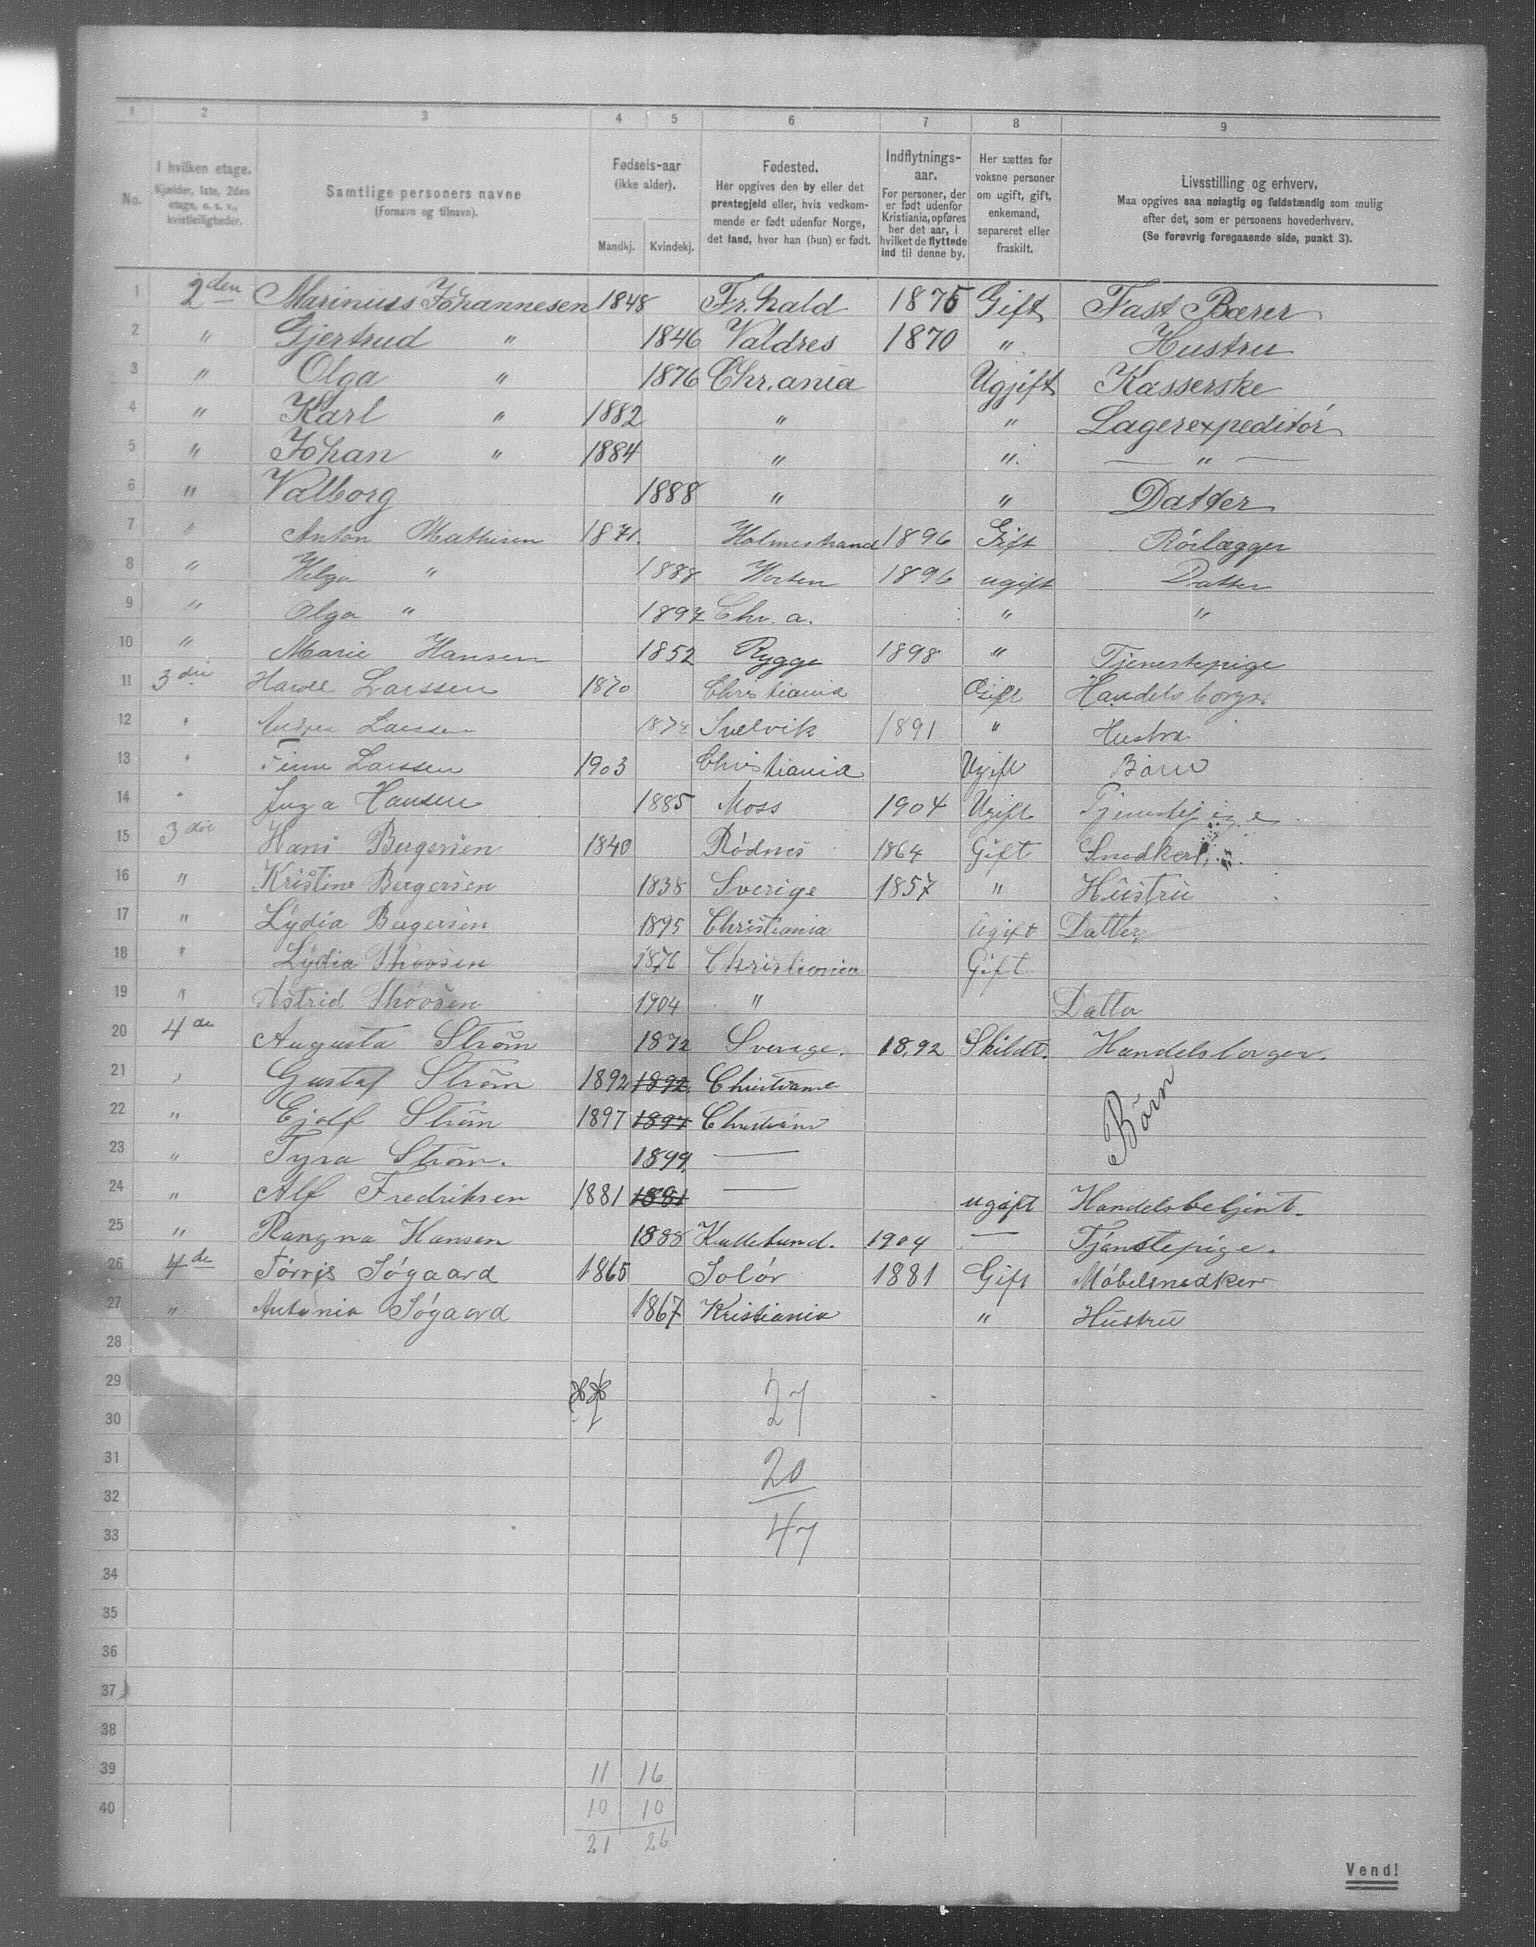 1 2 3 4 5 6 7 8 9
No.
I hvilken etage.
Kjælder, 1ste, 2den
etage, o. s. v.,
kvistleiligheder.
Samtlige personers navne
(Fornavn og tilnavn).
Fødsels-aar
(ikke alder).
Mandkj. Kvindekj.
Fødested.
Her opgives den by eller det
prestegjeld eller, hvis vedkom-
mende er født udenfor Norge,
det land, hvor han (hun) er født.
Indflytnings-
aar.
For personer, der
er født udenfor
Kristiania, opføres
her det aar, i
hvilket de flyttede
ind til denne by.
Her sættes for
voksne personer
om ugift, gift,
enkemand,
separeret eller
fraskilt.
Livsstilling og erhverv.
Maa opgives saa nøiagtig og fuldstændig som mulig
efter det, som er personens hovederhverv.
(Se forøvrig foregaaende side, punkt 3).
1 2den Marinius Johannesen 1848 Fr.hald 1875 Gift Fast Bærer
2 " Gjertrud " 1846 Valdres 1870 " Hustru
3 " Olga " 1876 Chr.ania Ugjift Kasserske
4 " Karl " 1882 " " Lagerexpeditør
5 " Johan " 1884 " " — " —
6 " Valborg 1888 " " Datter
7 " Anton Mathisen 1871. Holmestrand 1896 Gift Rørlægger
8 " Helga " 1888 Horten 1896 ugift Datter
9 " Olga " 1897 Chr. a. " "
10 " Marie Hansen 1852 Rygge 1898 " Tjenestepige
11 3die Larssen 1870 Christiania Gift Handelsborger
12 " Larssen Svelvik 1891 " Hustru
13 " Finn Larssen 1903 Christiania Ugift Barn
14 " Inga Hansen 1885 Moss 1904 Ugift Tjenestepige
15 3die Hans Bergersen 1840 Rødnes 1864 Gift Snedker
16 " Kristine Bergersen 1838 Sverige 1857 " Hustru
17 " Lydia Bergersen 1895 Christiania Ugift Datter
18 " Lydia Thovsen 1876 Christiania Gift
19 " Astrid Thovsen 1904 " Datter
20 4de Augusta Strøm 1872 Sverige. 1892 Skildt. Handelsborger.
21 " Gustaf Strøm 1892 1892 Christiania
22 " Ejolf Strøm 1897 1897 Christiania Børn
23 " Tyra Strøm. 1899 —
24 " Alf Fredriksen 1881 1881 — ugift Handelsbetjent.
25 " Rangna Hansen 1888 1904 — Tjenstepige.
26 4de Søgaard 1865 Solør 1881 Gift Møbelsnedker
27 " Antonia Søgaard 1867 Kristiania " Hustru
28
29 27
30
31 20
32
33 47
34
35
36
37
38
39 11 16
40 10 10
21 26
Vend!